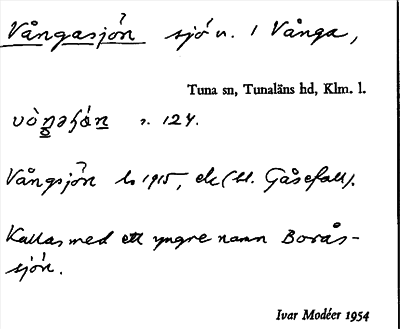 Vångasjön sjö n. i Vånga,
Tuna sn, Tunaläns hd, Klm. l.
s. 124.
Vångsjön ls 1915, ek (bl. Gåsefall).
Kallas med ett yngre namn Borås-
sjön.
Ivar Modéer 1954